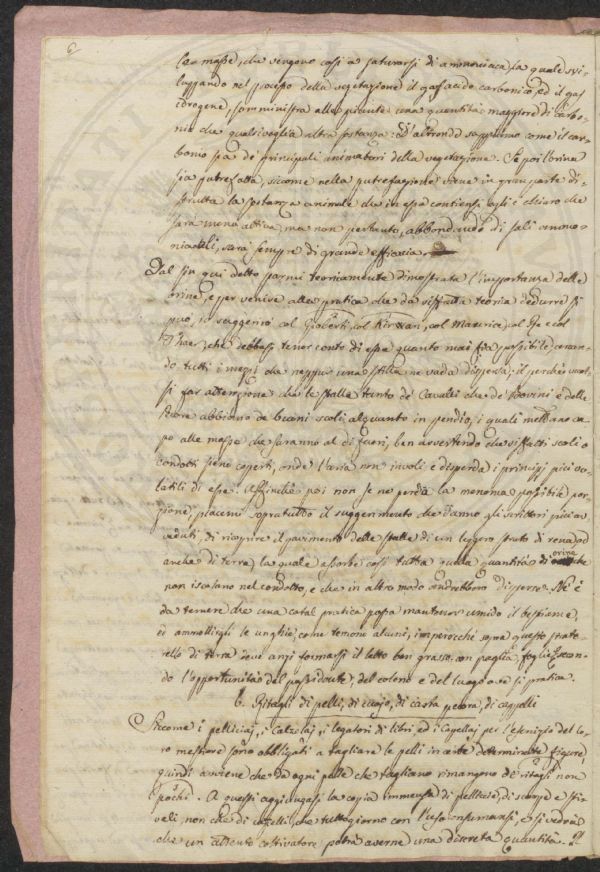 6
les masse, che vengono così a saturarsi di ammoniaca, la quale svi-
luppando nel processo della vegetazione il gas acido carbonico, ed il gas
idrogene, somministra alle piante una quantità maggiore di carbo-
nio che qualsivoglia altra sostanza: ed altronde sappiamo come il car-
bonio sia de' principali animatori della vegetazione. Se poi l'orina
sia putrefatta, siccome nella putrefazione viene in gran parte di-
strutta la sostanza animale che in essa contiensi, egli è chiaro che
sarà meno attiva, ma non pertanto, abbondando di sali ammo-
niacali, sarà sempre di grande efficacia.
Dal sin qui detto parmi teoricamente dimostrata l'importanza delle
orine, e per venire alla pratica che da siffatta teoria dedurre si
può, io suggerirò col Gioberti, col Kirwan, col Maurice, col Re e col
Thaer, che debbasi tener conto di esse quanto mai fia possibile, usan-
do tutti i mezzi che neppur una stilla ne vada dispersa; il perchè vuol-
si far attenzione che le stalle tanto de' Cavalli che de' Bovini e delle
pecore abbiano de' buoni scoli, alquanto in pendio, i quali mettano ca-
po alle masse che saranno al di fuori, ben avvertendo che siffatti scoli o
condotti sieno coperti, onde l'aria non involi e disperda i principj più vo-
latili di esse. Affinchè poi non se ne perda la menoma possibile por-
zione, piacemi sopratutto il suggerimento che danno gli scrittori più av-
veduti, di ricoprire il pavimento delle stalle di un leggero strato di rena, od
anche di terra, la quale assorbe così tutta quella quantità di orine che
non iscolano nel condotto, e che in altro modo andrebbero disperse. Nè è
da temere che una cotal pratica possa mantener umido il bestiame,
ed ammollirgli le unghie, come temono alcuni, imperocchè sopra questo strato
rello di terra deve anzi formarsi il letto ben grasso con paglia, foglie, secon-
do l'opportunità del possidente, del colono e del luogo ove si pratica.
6. Ritagli di pelli, di cuojo, di carta pecora, di cappelli
Siccome i pelliciaj, i Calzolaj, i legatori di libri ed i Capellaj per l'esercizio del lo-
ro mestiere sono obbligati a tagliare le pelli in certe determinate figure,
quindi avviene che da ogni pelle che tagliano rimangono de' ritagli non
pochi. A questi aggiungasi la copia immensa di pelliccie, di scarpe e sti-
vali, non che di cappelli, che tuttogiorno con l'uso consumansi, e si vedrà
che un attento coltivatore potrà averne una discreta quantità.